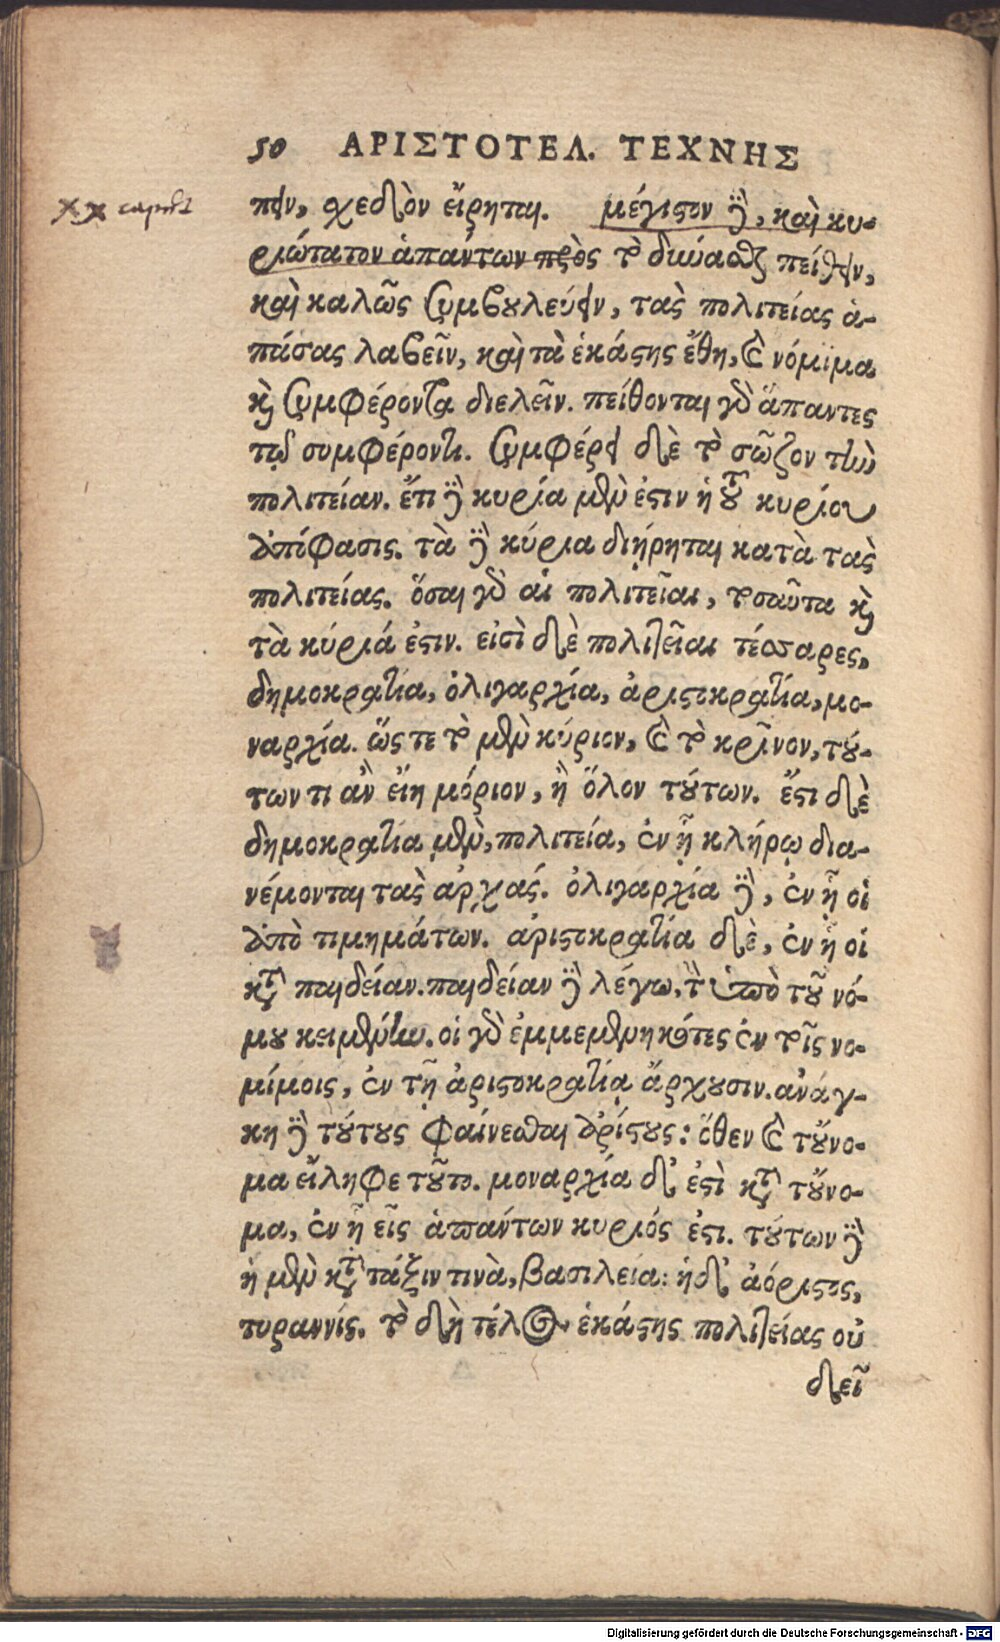 50 ΑΡΙΣΤΟΤΕΛ. ΤΕΧΝΗΣ
xx caput
πειν, σχεδὸν εἴρηται. μέγιστον δὲ, καὶ κυ-
ριώτατον ἁπάντων πρὸς τὸ δύνασθαι πείθειν,
καὶ καλῶς συμβουλεύειν, τὰς πολιτείας ἁ-
πάσας λαβεῖν, καὶ τὰ ἑκάστης ἔθη, καὶ νόμιμα
καὶ συμφέροντα διελεῖν. πείθονται γὰρ ἅπαντες
τῷ συμφέροντι. συμφέρει δὲ τὸ σῶζον τὴν
πολιτείαν. ἔτι δὲ κυρία μὲν ἐστιν ἡ τοῦ κυρίου
ἀπόφασις. τὰ δὲ κύρια διῄρηται κατὰ τὰς
πολιτείας. ὅσαι γὰρ αἱ πολιτεῖαι, τοσαῦτα καὶ
τὰ κύριά ἐστιν. εἰσὶ δὲ πολιτεῖαι τέσσαρες,
δημοκρατία, ὀλιγαρχία, ἀριστοκρατία, μο-
ναρχία. ὥς τε τὸ μὲν κύριον, καὶ τὸ κρῖνον, τού-
των τι ἂν εἴη μόριον, ἢ ὅλον τούτων. ἔστι δὲ
δημοκρατία μὲν, πολιτεία, ἐν ᾗ κλήρῳ δια-
νέμονται τὰς ἀρχάς. ὀλιγαρχία δὲ, ἐν ᾗ οἱ
ἀπὸ τιμημάτων. ἀριστοκρατία δὲ, ἐν ᾗ οἱ
κατὰ παιδείαν. παιδείαν δὲ λέγω, τὴν ὑπὸ τοῦ νό-
μου κειμένην. οἱ γὰρ ἐμμεμενηκότες ἐν τοῖς νο-
μίμοις, ἐν τῇ ἀριστοκρατίᾳ ἄρχουσιν. ἀνάγ-
κη δὲ τούτους φαίνεσθαι ἀρίστους: ὅθεν καὶ τοὔνο-
μα εἴληφε τοῦτο. μοναρχία δ' ἐστὶ κατὰ τοὔνο-
μα, ἐν ᾗ εἷς ἁπάντων κυριός ἐστι. τούτων δὲ
ἡ μὲν κατὰ τάξιν τινὰ, βασιλεία: ἡ δ' ἀόριστος,
τυραννίς. τὸ δὴ τέλος ἑκάστης πολιτείας οὐ
δεῖ
Digitalisierung gefördert durch die Deutsche Forschungsgemeinschaft - DFG